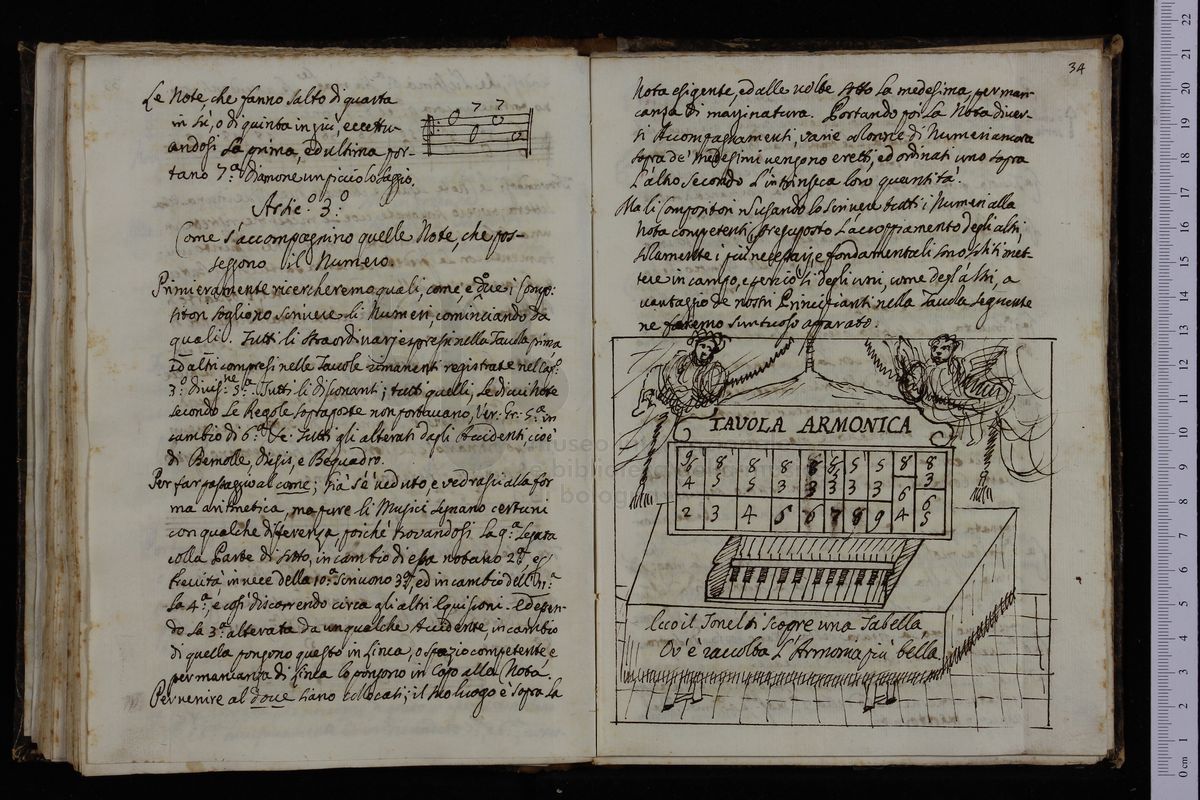 Le Note, che fanno salto di quarta
in sù, o di quinta in giù, eccettu-
andosi la prima, ed ultima por-
tano 7.ª Diamone un picciolo Saggio.
7 7
Artic.º 3.º
Come s'accompagnino quelle Note, che pos-
seggono il Numero.
Primieramente ricercheremo quali, come, e doue i Compo-
sitori sogliono scriuere li Numeri, cominciando da
quali. Tutti li straordinarj espressi nella Tauola prima,
Ed altri compresi nelle Tauole rimanenti registrate nel Cap.º
3.º Diuis.ne 3.ª Tutti li disonanti; tutti quelli, le di cui Note
secondo le Regole sopraposte non portauano, Ver: Gr: 5.ª in
cambio di 6.ª Tutti gli alterati dagli Accidenti, cioè
di Bemolle, Diesis, e Bequadro.
Per far passaggio al come; già s'è ueduto, e uedrassi alla for
ma aritmetica, ma pure li Musici segnano certuni
con qualche diferenza, poiche trouandosi la 9.ª legata
colla Parte di sotto, in cambio di essa notano 2.ª, e
breuità in uece della 10.ª scriuono 3.ª, ed in cambio dell'11.ª
la 4.ª, e così discorrendo circa gli altri Equisoni. Ed essen-
do la 3.ª alterata da un qualche Accidente, in cambio
di quella pongono questo in linea, o spazio competente, e
per mancanza di linea lo pongono in capo alla Nota.
Per uenire al doue siano collocati; il suo luogo è sopra la
34
Nota esigente, ed alle uolte sotto la medesima, per man-
canza di marginatura. Portando poi la Nota diuer-
si Accompagnamenti, uarie colonne di Numeri ancora
sopra de' medesimi uengono eretti, ed ordinati uno sopra
l'altro secondo l'intrinseca loro quantità.
Ma li Compositori ricusando lo scriuere tutti i Numeri alla
nota competenti, presuposto l'accoppiamento degli altri
solamente i più necessarj, e fondamentali sono soliti met-
tere in campo, e perciò sì degli uni, come degl'altri, a
uantaggio de nostri Principianti nella Tauola seguente
ne faremo suntuoso apparato.
TAVOLA ARMONICA
6 8 8 8 8 6 5 5 8 8
4 5 5 3 3 3 3 3 6 3
2 3 4 5 6 7 8 9 4 6
5
Ecco il Tonelli scopre una Tabella
Ou'è raccolta l'Armonia più bella